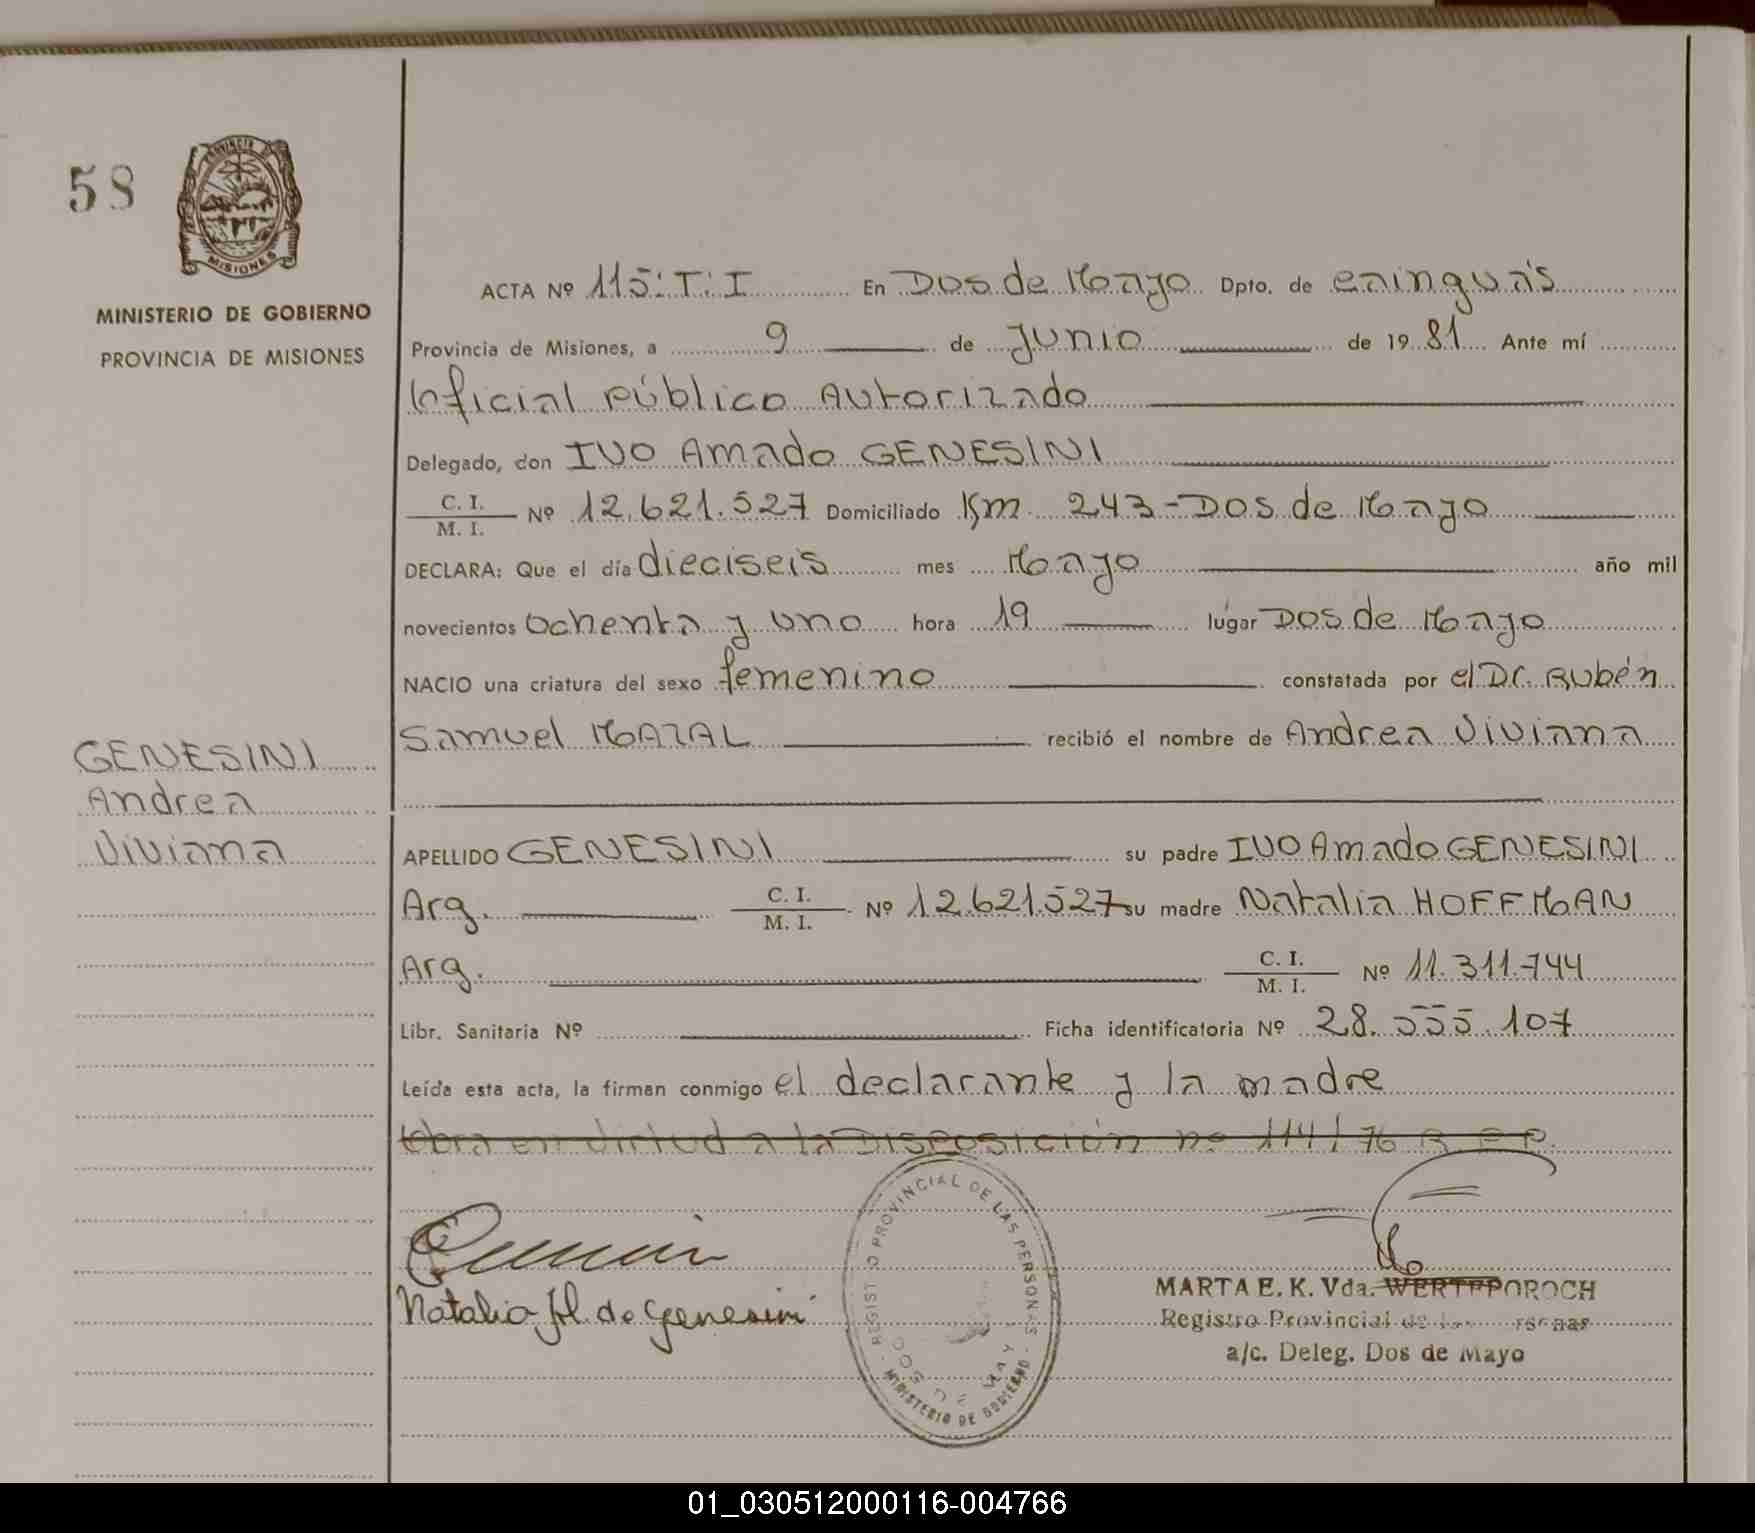 58
PROVINCIA DE
MISIONES
MINISTERIO DE GOBIERNO
PROVINCIA DE MISIONES
ACTA Nº 115:T:I En Dos de Mayo Dpto. de Cainguás
Provincia de Misiones, a 9 de Junio de 1981 Ante mí
Oficial Público Autorizado
Delegado, don IVO Amado GENESINI
C. I.
M. I. Nº 12.621.527 Domiciliado Km 243-Dos de Mayo
DECLARA: Que el día dieciseis mes Mayo año mil
novecientos Ochenta y uno hora 19 lugar Dos de Mayo
NACIO una criatura del sexo femenino constatada por el Dr. Rubén
Samuel MAZAL recibió el nombre de Andrea Viviana
GENESINI
Andrea
Viviana
APELLIDO GENESINI su padre IVO Amado GENESINI
Arg. C. I.
M. I. Nº 12.621.527 su madre Natalia HOFFMAN
Arg. C. I.
M. I. Nº 11.311.744
Libr. Sanitaria Nº Ficha identificatoria Nº 28.555.107
Leída esta acta, la firman conmigo el declarante y la madre
Obra en virtud a la Disposición nº 114/76 R.P.P.
Natalia H. de Genesini
REGISTRO PROVINCIAL DE LAS PERSONAS
DOS DE MAYO
MINISTERIO DE GOBIERNO
MARTA E. K. Vda. WERTEPOROCH
Registro Provincial de las Personas
a/c. Deleg. Dos de Mayo
01_030512000116-004766